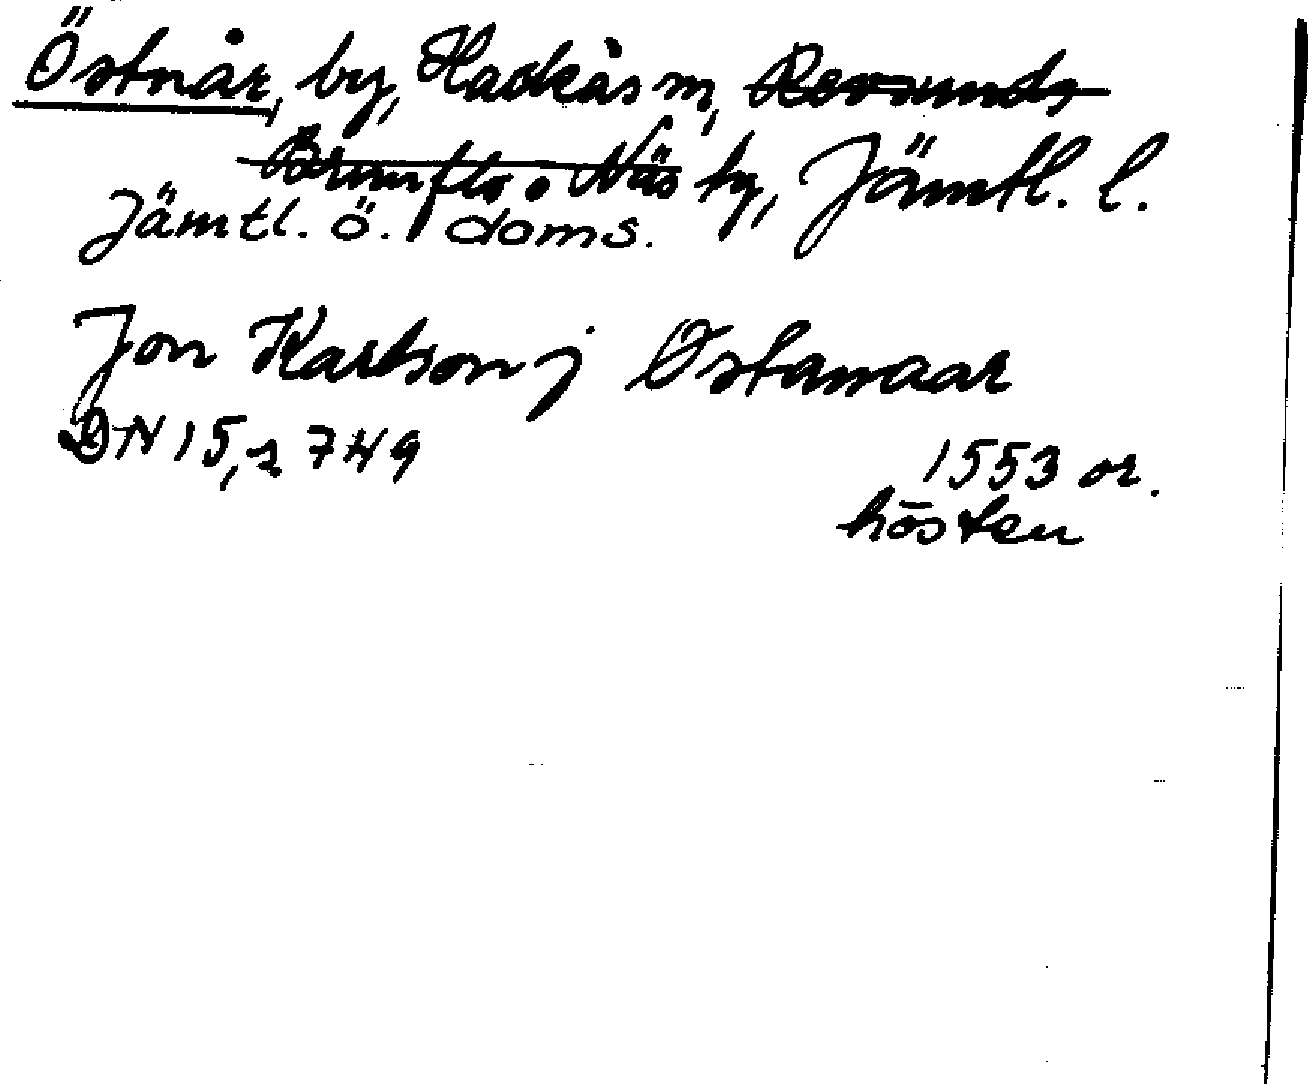 Östnår, by, Hackås sn, Revsunds
Brunflo o Näs tg, Jämtl. l.
Jämtl. ö. doms.
Jon Karlson j Østanaar
DN 15, 2 749 1553 or.
hösten